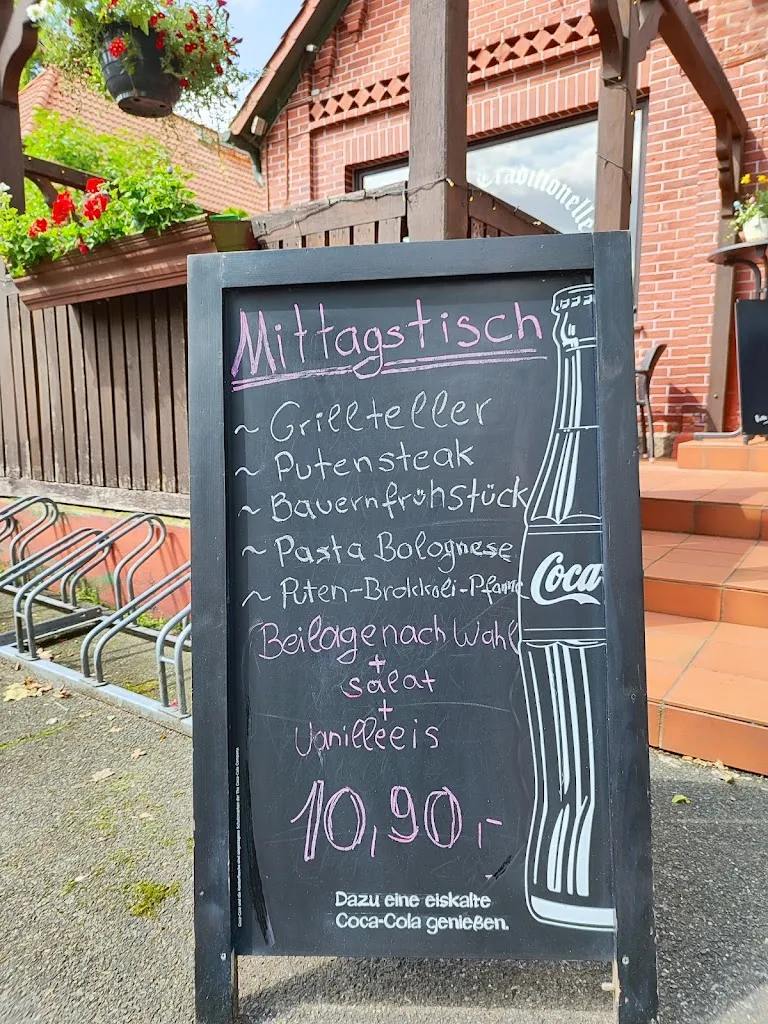 Traditionelle
Mittagstisch
~ Grillteller
~ Putensteak
~ Bauernfrühstück
~ Pasta Bolognese
~ Puten-Brokkoli-Pfanne
Beilage nach Wahl
+
salat
+
Vanilleeis
10,90,-
Coca
Dazu eine eiskalte
Coca-Cola genießen.